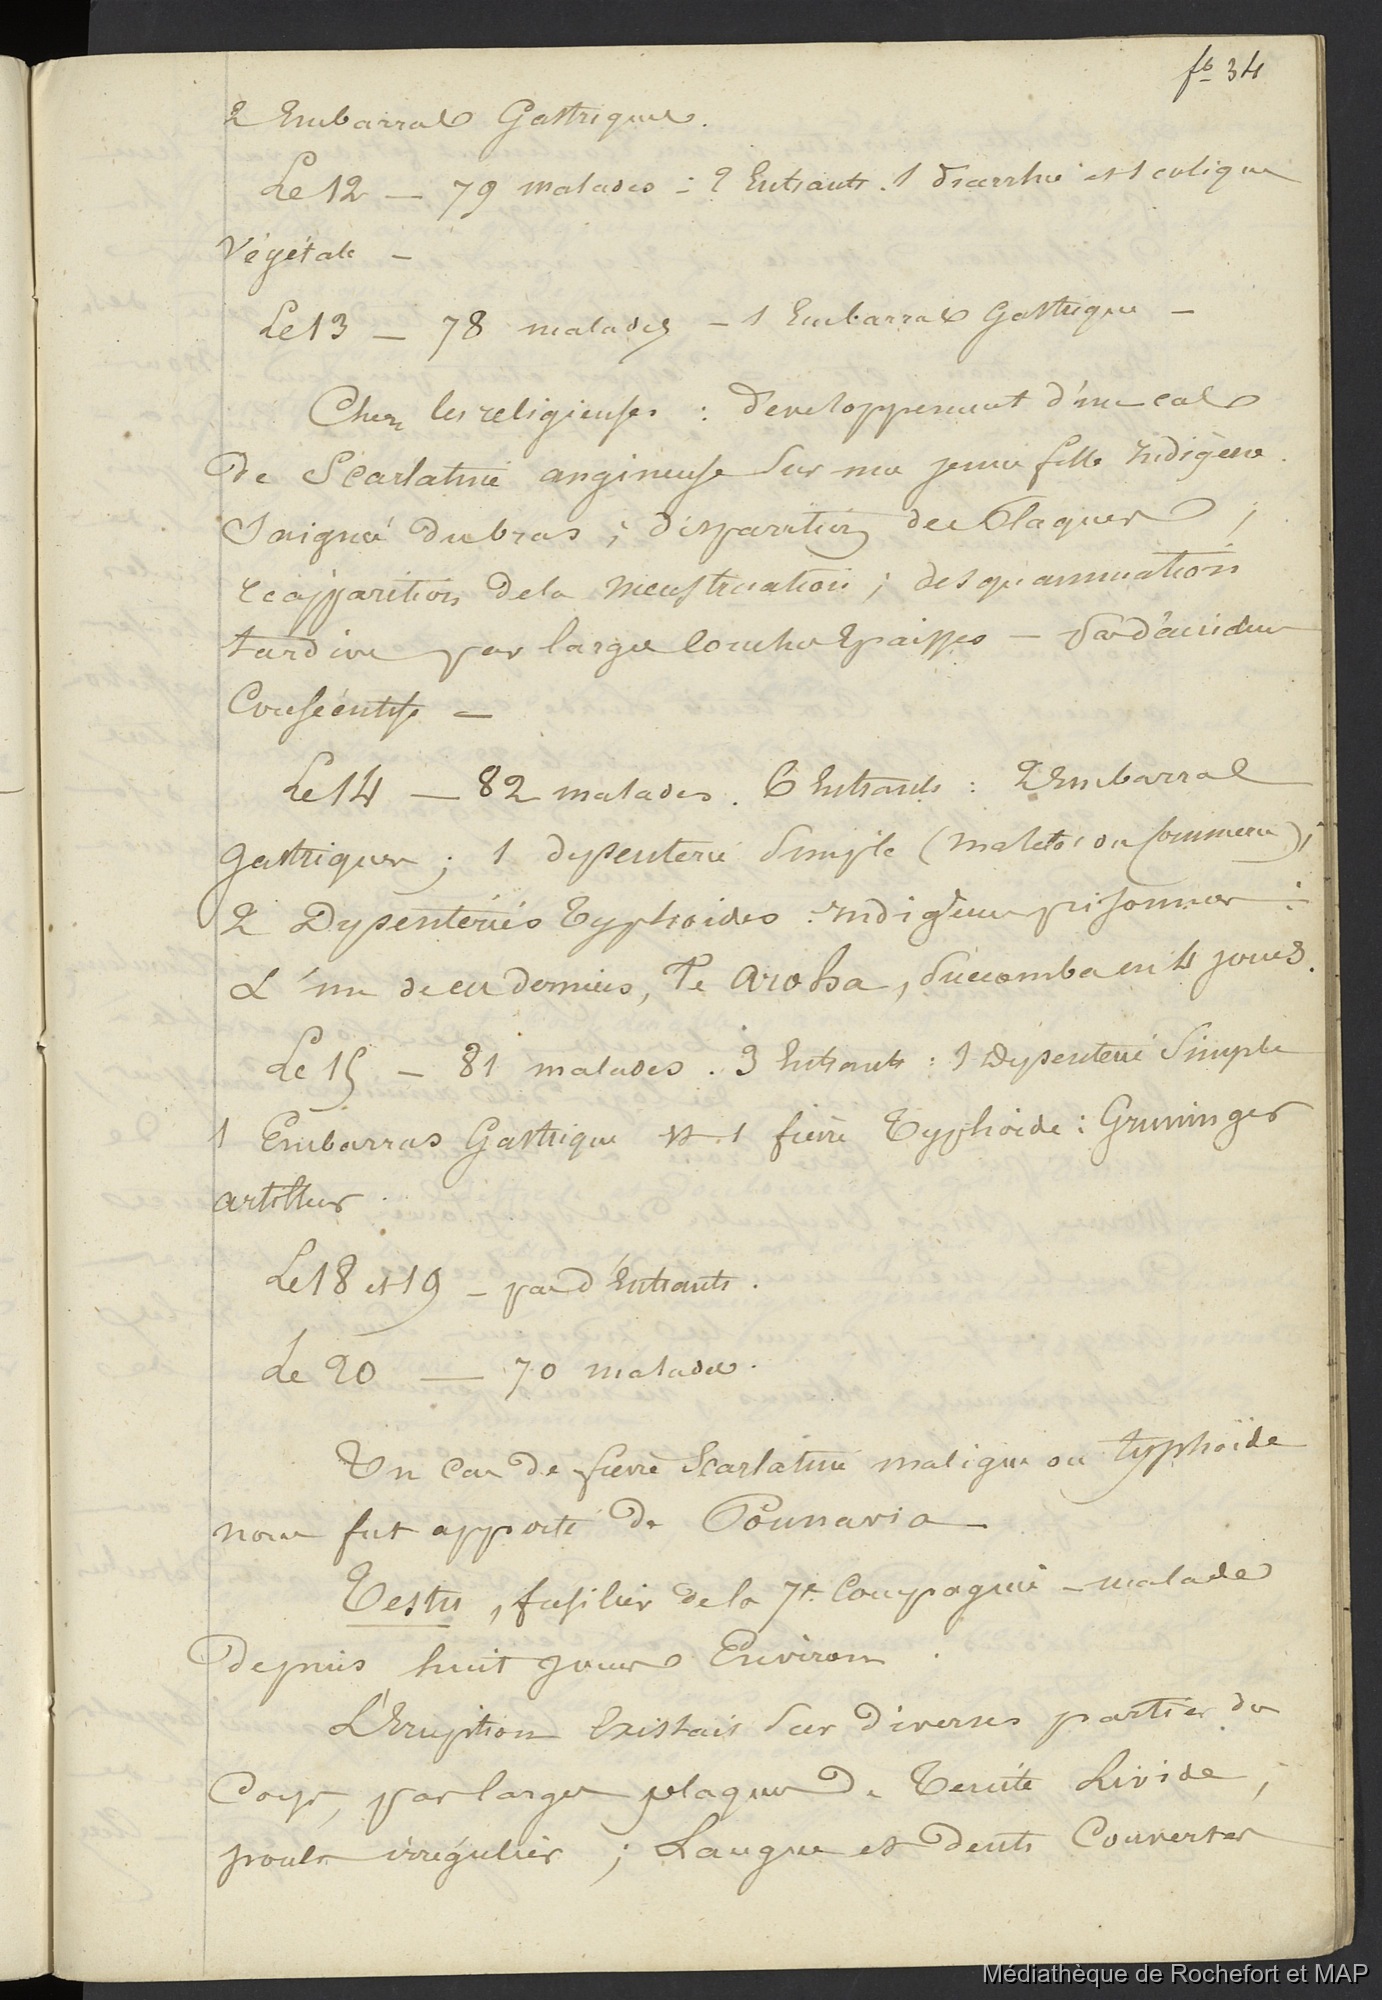 fo 34
2 Embarras Gastriques.
Le 12 — 79 malades : 2 Entrants. 1 diarrhée et 1 colique
Végétale —
Le 13 — 78 malades — 1 Embarras Gastrique —
Chez les religieuses : développement d'un cas
de Scarlatine angineuse sur une jeune fille indigène.
Saignée du bras ; disparition des plaques ;
réapparition de la menstruation ; desquammation
tardive par larges couches épaisses — pas d'accidens
Consécutifs —
Le 14 — 82 malades. 6 Entrants : 2 Embarras
gastriques ; 1 dysenterie simple (matelot du commerce),
2 Dysenteries Typhoides : indigènes prisonniers :
L'un de ces derniers, Te Aroha, succomba en 4 jours.
Le 15 — 81 malades. 3 Entrants : 1 dysenterie simple
1 Embarras Gastrique et 1 fièvre Typhoide : Gruninger
artilleur.
Le 18 et 19 — pas d'Entrants.
Le 20 — 70 malades.
Un cas de fièvre Scarlatine maligne ou typhoïde
nous fut apporté de Pounavia —
Testu, fusilier de la 7e Compagnie — malade
depuis huit jours Environ.
L'Eruption Existait sur diverses parties du
Corps, par larges plaques de Teinte Livide ;
pouls irrégulier ; Langue et dents Couvertes
Médiathèque de Rochefort et MAP